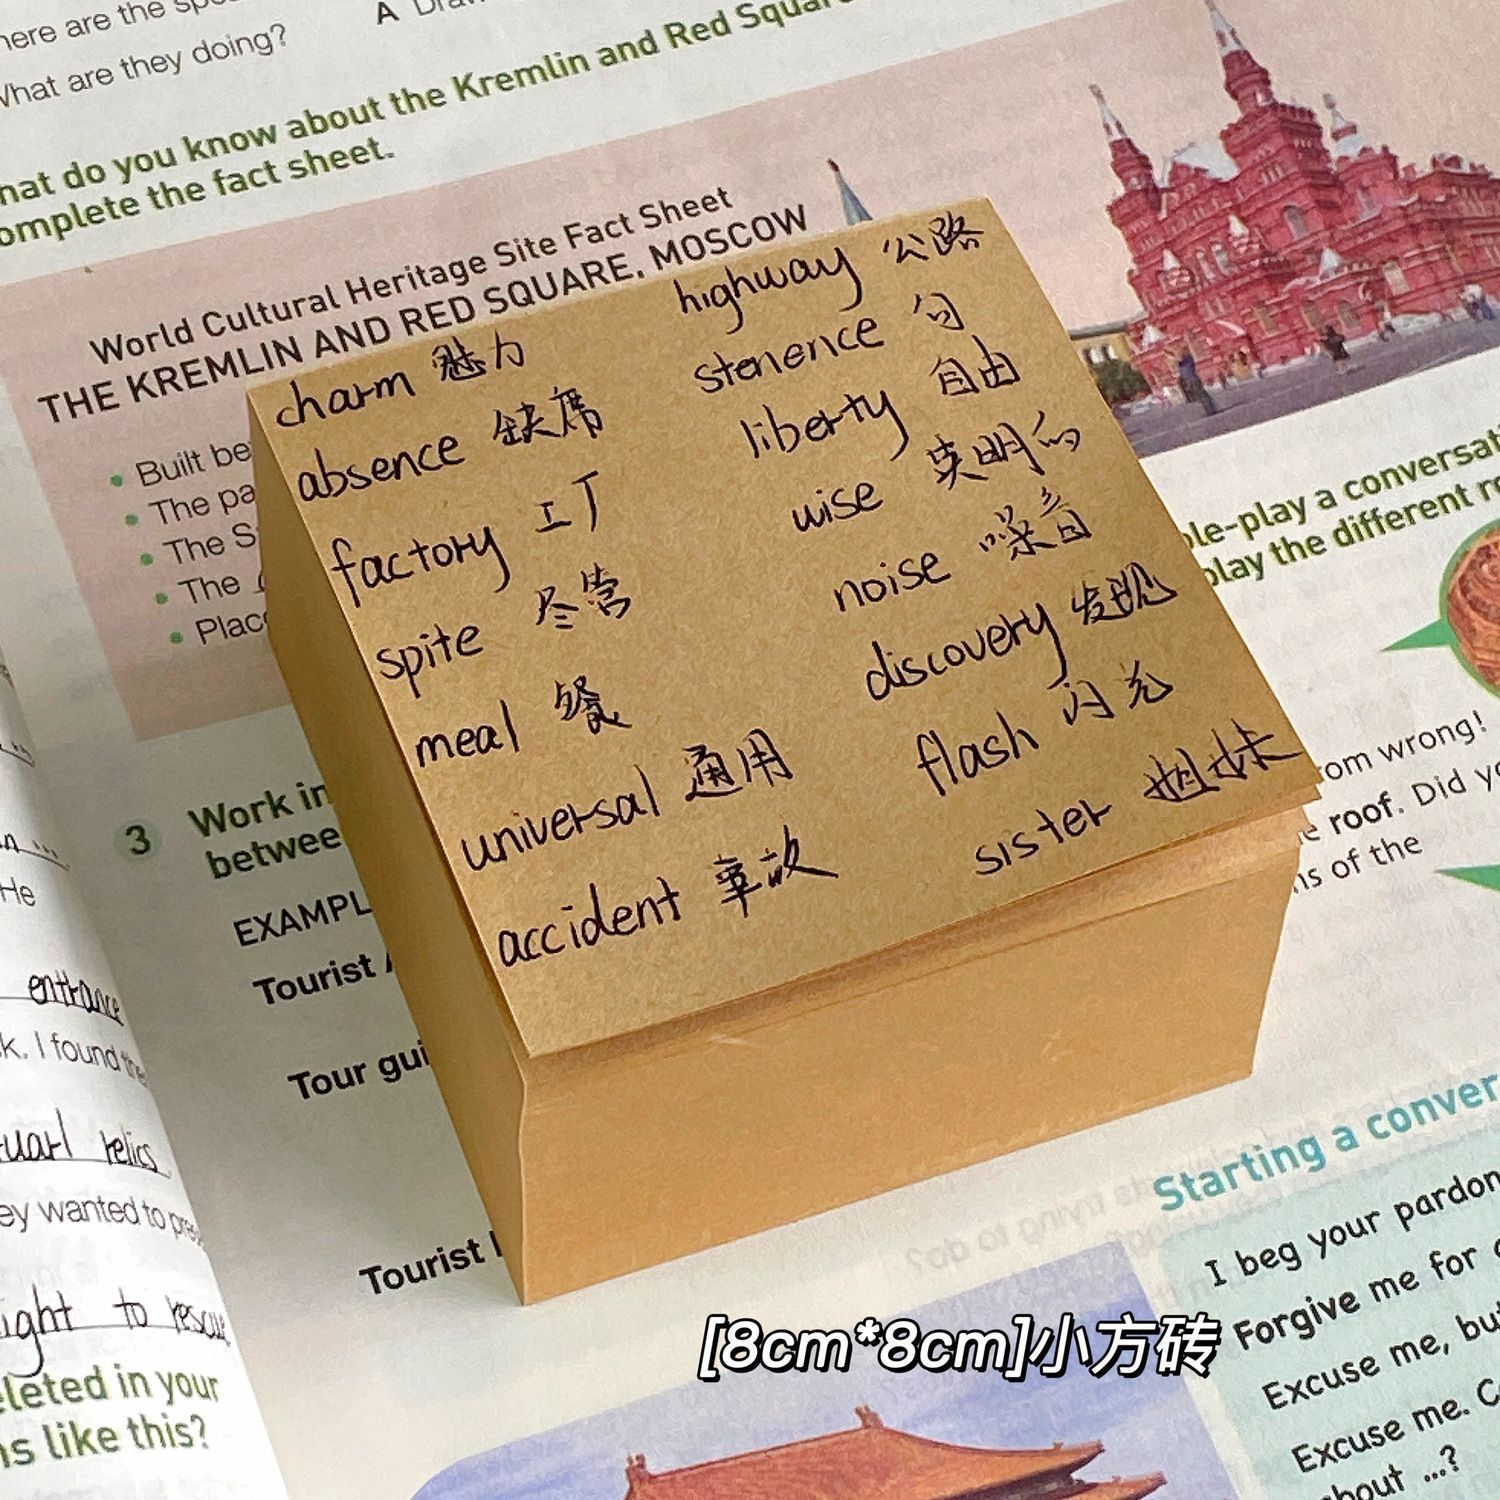 What are they doing?
What do you know about the Kremlin and Red Square
complete the fact sheet.
World Cultural Heritage Site Fact Sheet
THE KREMLIN AND RED SQUARE, MOSCOW
Built be
The pa
The S
The
Plac
charm 魅力
absence 缺席
factory 工厂
spite 尽管
meal 餐
universal 通用
accident 事故
highway 公路
stenence 句
liberty 自由
wise 英明的
noise 噪音
discovery 发现
flash 闪光
sister 姐妹
ole-play a conversati
play the different ro
3 Work in
betwee
EXAMPL
Tourist
Tour gui
Tourist
om wrong!
roof. Did yo
ns of the
He
entrance
k. I found the
relics
ey wanted to pres
ight to rescue
eleted in your
ns like this?
Starting a conver
I beg your pardon
Forgive me for
Excuse me, but
Excuse me. C
about ...?
[8cm*8cm]小方砖